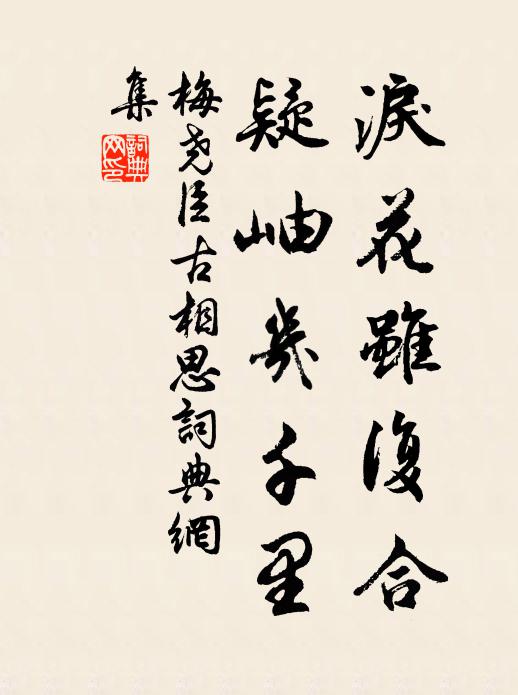 淚花雖復合
疑岫幾千里
梅堯臣古相思詞典網
集
詞典
网印